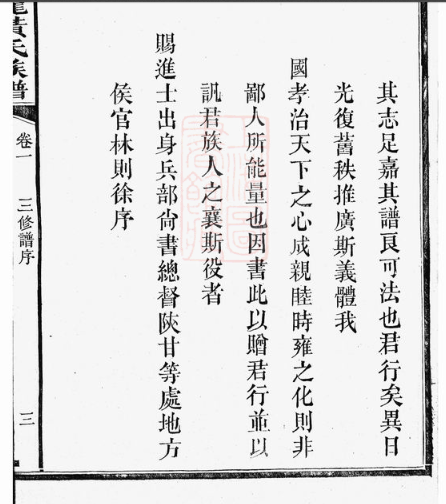 其志足嘉其譜良可法也君行矣異日
光復舊秩推廣斯義體我
國孝治天下之心成親睦時雍之化則非
鄙人所能量也因書此以贈君行並以
訊君族人之襄斯役者
賜進士出身兵部尙書總督陝甘等處地方
侯官林則徐序
黃氏族譜
卷一
三修譜序
三